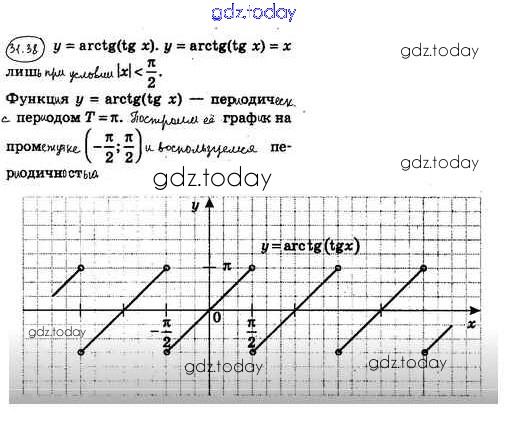 gdz.today
31.38 y = arctg(tg x). y = arctg(tg x) = x
gdz.today
лишь при условии |x| < π/2.
Функция y = arctg(tg x) — периодическ.
с периодом T = π. Построим её график на
промежутке (−π/2; π/2) и воспользуемся пе-
gdz.today
риодичностью
gdz.today
y
y = arctg(tgx)
π
−π/2
0
π/2
x
gdz.today
gdz.today
gdz.today